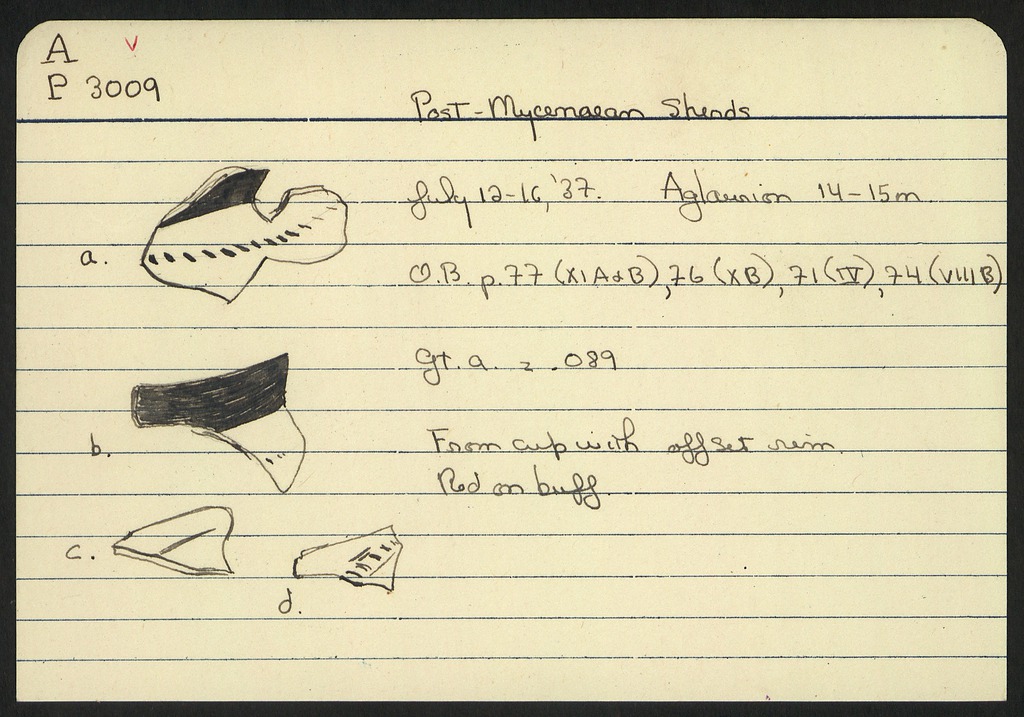 A v
P 3009
Post-Mycenaean Sherds
July 12-16, '37. Aglaurion 14-15m
a.
O.B. p. 77 (XI A&B), 76 (XB), 71 (IV), 74 (VIII B)
Gt. a. = .089
b.
From cup with offset rim.
Red on buff.
c.
d.